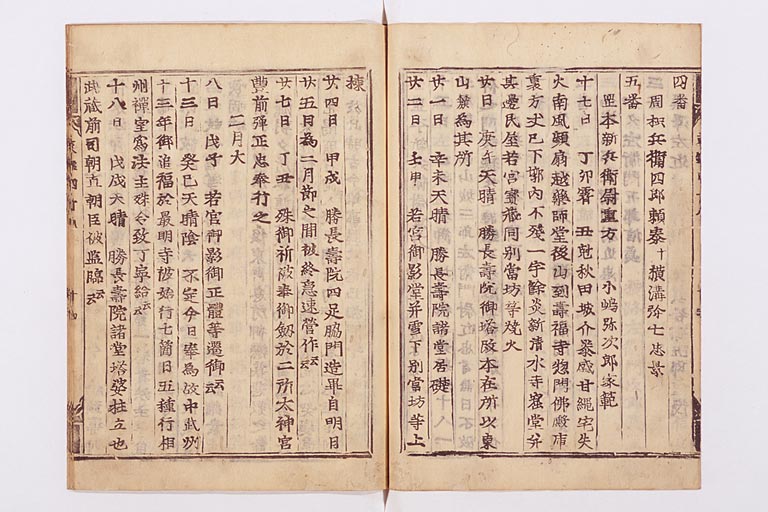 四番
三周枳兵衛四郎頼泰十横溝弥七忠景
五番
岡本新兵衛尉重方 小嶋弥次郎家範
十七日 丁卯霽 丑剋秋田城介泰盛甘縄宅失
火南風頻扇越藥師堂後山到壽福寺惣門佛殿庫
裏方丈已下墎內不殘一宇餘炎新清水寺窟堂并
其邊民屋若宮寳藏同別當坊等燒火
廿日 庚午天晴 勝長壽院御塔改本在所以東
山麓為其所
廿一日 辛未天晴 勝長壽院諸堂居礎
廿二日 壬申 若宮御影堂并雪下別當坊等上
揀
廿四日 甲戌 勝長壽院四足脇門造畢自明日
廿五日為二月節之間被終急速營作云云
廿七日 丁丑 殊御祈被奉御釼於二所太神宮
豊前弾正忠奉行之
二月大
八日 戊子 若宮御影御正體等還御云云
十三日 癸巳天晴陰不定今日奉為故中武州
十三年御追福於最明寺被始行七箇日五種行相
州禪室寫法主殊令致丁寧給云云
十八日 戊戌天晴 勝長壽院諸堂塔婆柱立也
武藏前司朝直朝臣被監臨云云